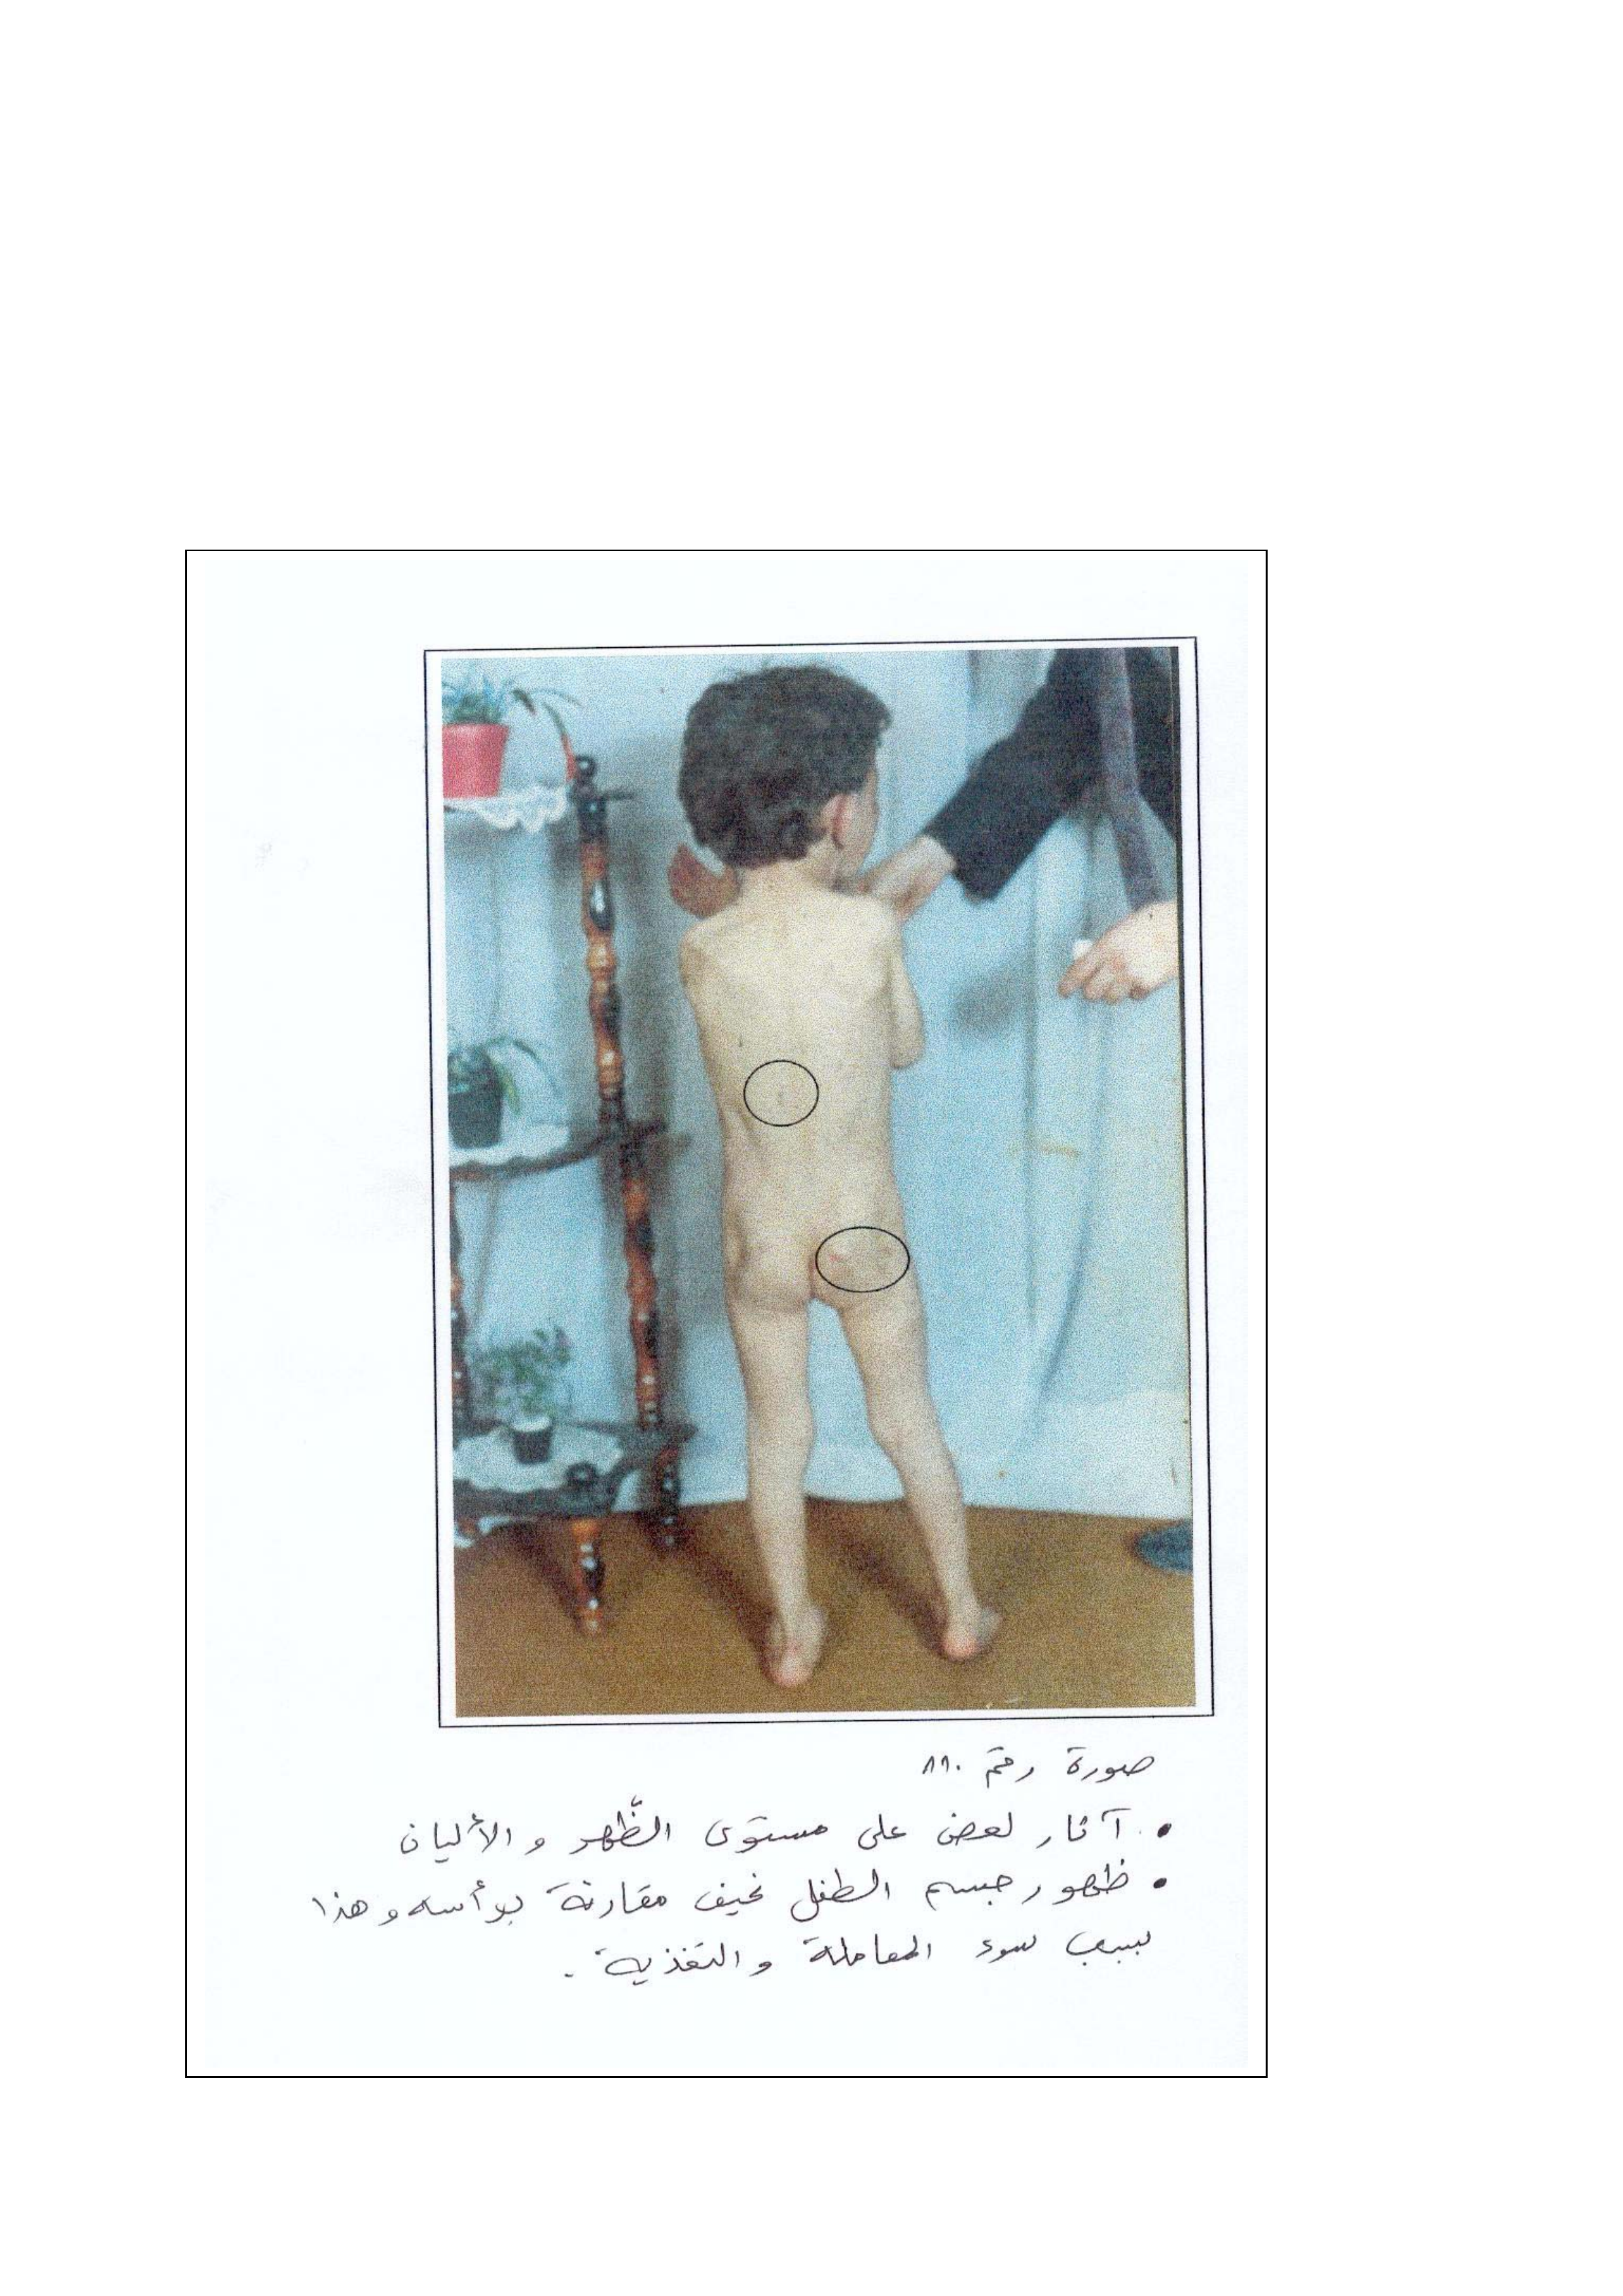 صورة رقم ٨٩٠
• آثار لعض على مستوى الظّهر و الأليان
• ظهور جسم الطفل نحيف مقارنة برأسه و هذا
بسبب سوء المعاملة و التغذية .